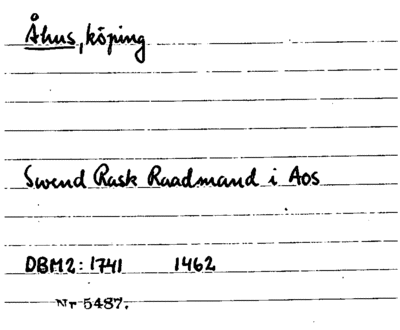 Åhus, köping
Swend Rask Raadmand i Aos
DBM2: 1741 1462
Nr 5487.